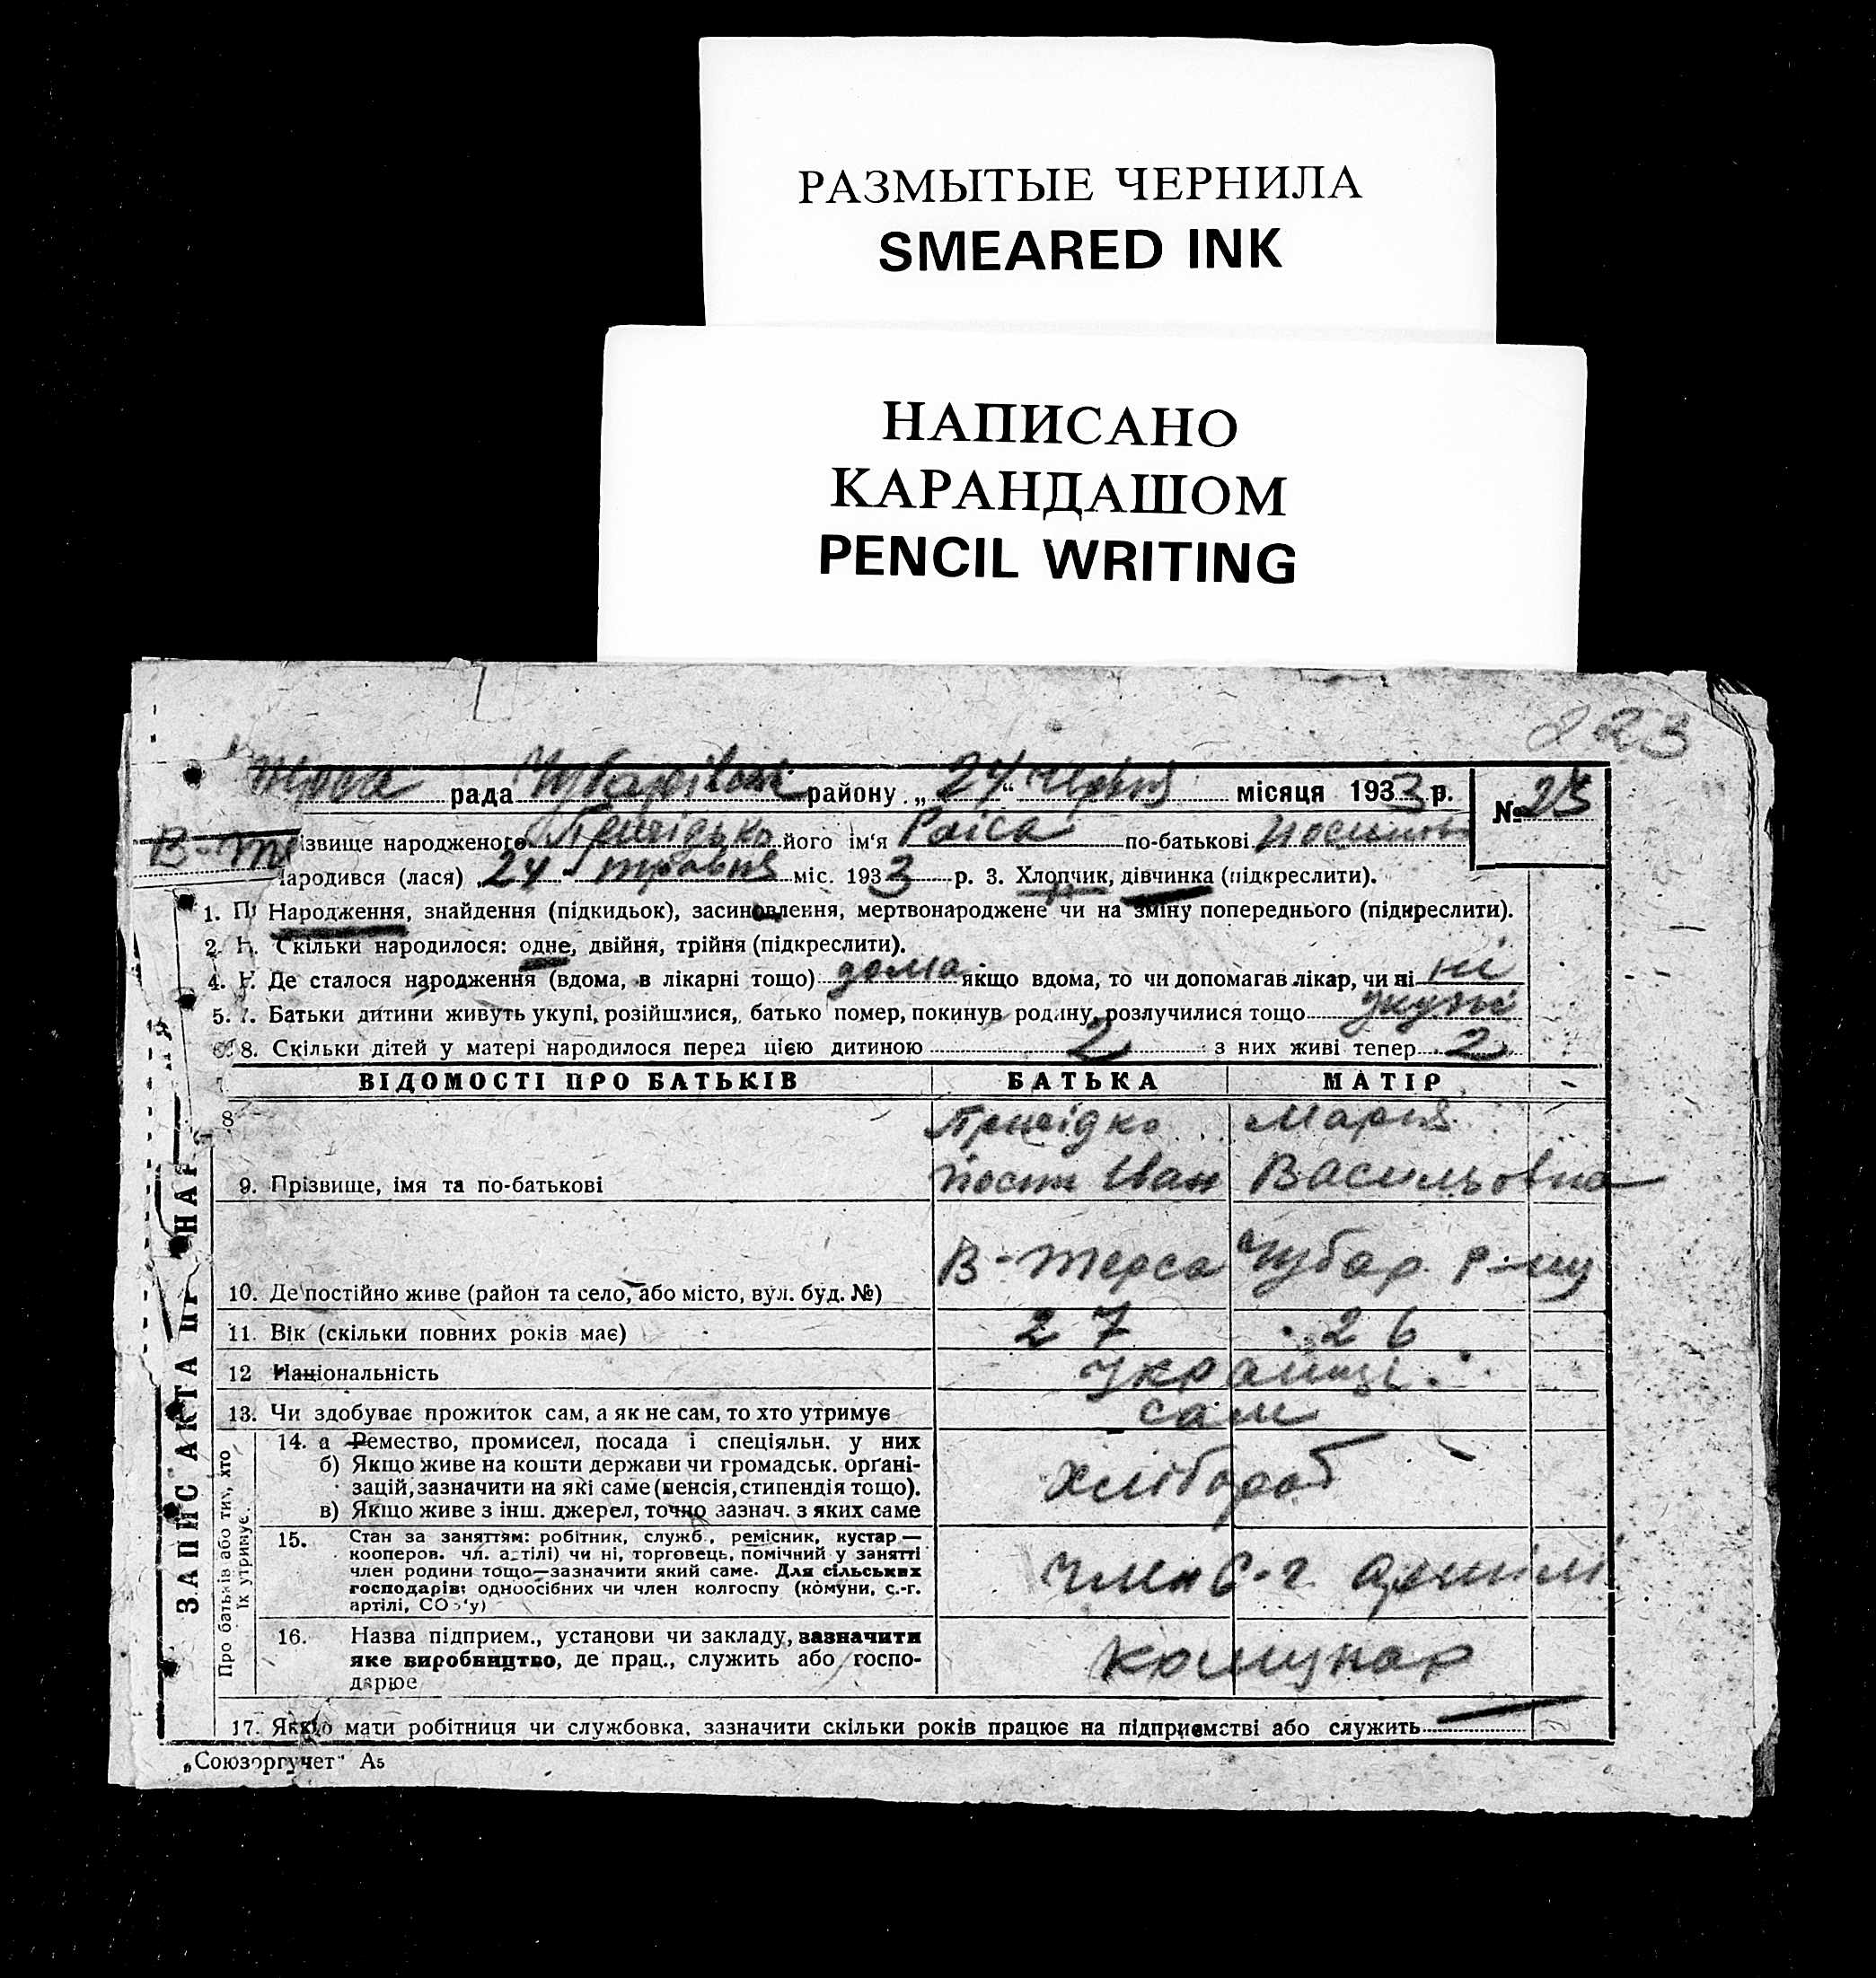 РАЗМЫТЫЕ ЧЕРНИЛА
SMEARED INK
НАПИСАНО
КАРАНДАШОМ
PENCIL WRITING
823
рада района району „24“ червня місяця 1933 р. № 23
В-Те
ізвище народженого його ім'я Раіса по-батькові
Народився (лася) 24 травня міс. 1933 р. 3. Хлопчик, дівчинка (підкреслити).
1. П Народження, знайдення (підкидьок), засиновлення, мертвонароджене чи на зміну попереднього (підкреслити).
2. Н. Скільки народилося: одне, двійня, трійня (підкреслити).
4. Н. Де сталося народження (вдома, в лікарні тощо) дома якщо вдома, то чи допомагав лікар, чи ні ні
5. 7. Батьки дитини живуть укупі, розійшлися, батько помер, покинув родину, розлучилися тощо укупі
8. Скільки дітей у матері народилося перед цією дитиною 2 з них живі тепер 2
ВІДОМОСТІ ПРО БАТЬКІВ БАТЬКА МАТІР
8
Мария
9. Прізвище, імя та по-батькові Іван Васильовна
10. Де постійно живе (район та село, або місто, вул. буд. №) В-Терса Чубар. р-ну
11. Вік (скільки повних років має) 27 26
12 Національність Украинці
13. Чи здобуває прожиток сам, а як не сам, то хто утримує сам
14. а Ремество, промисел, посада і спеціяльн. у них
б) Якщо живе на кошти держави чи громадськ. орґані-
зацій, зазначити на які саме (пенсія, стипендія тощо).
в) Якщо живе з інш. джерел, точно зазнач. з яких саме
Хлібороб
15. Стан за заняттям: робітник, служб., ремісник, кустар —
кооперов. чл. артілі) чи ні, торговець, помічний у занятті
член родини тощо—зазначити який саме. Для сільських
господарів: одноосібних чи член колгоспу (комуни, с.-г.
артілі, СОЗ'у)
член С-г артілі
16. Назва підприєм., установи чи закладу, зазначити
яке виробництво, де прац., служить або госпо-
дарює
комунар
17. Якщо мати робітниця чи службовка, зазначити скільки років працює на підприємстві або служить
ЗАПИС АКТА ПР НАР
Про батьків або тих, хто
їх утримує.
„Союзоргучет“ А5